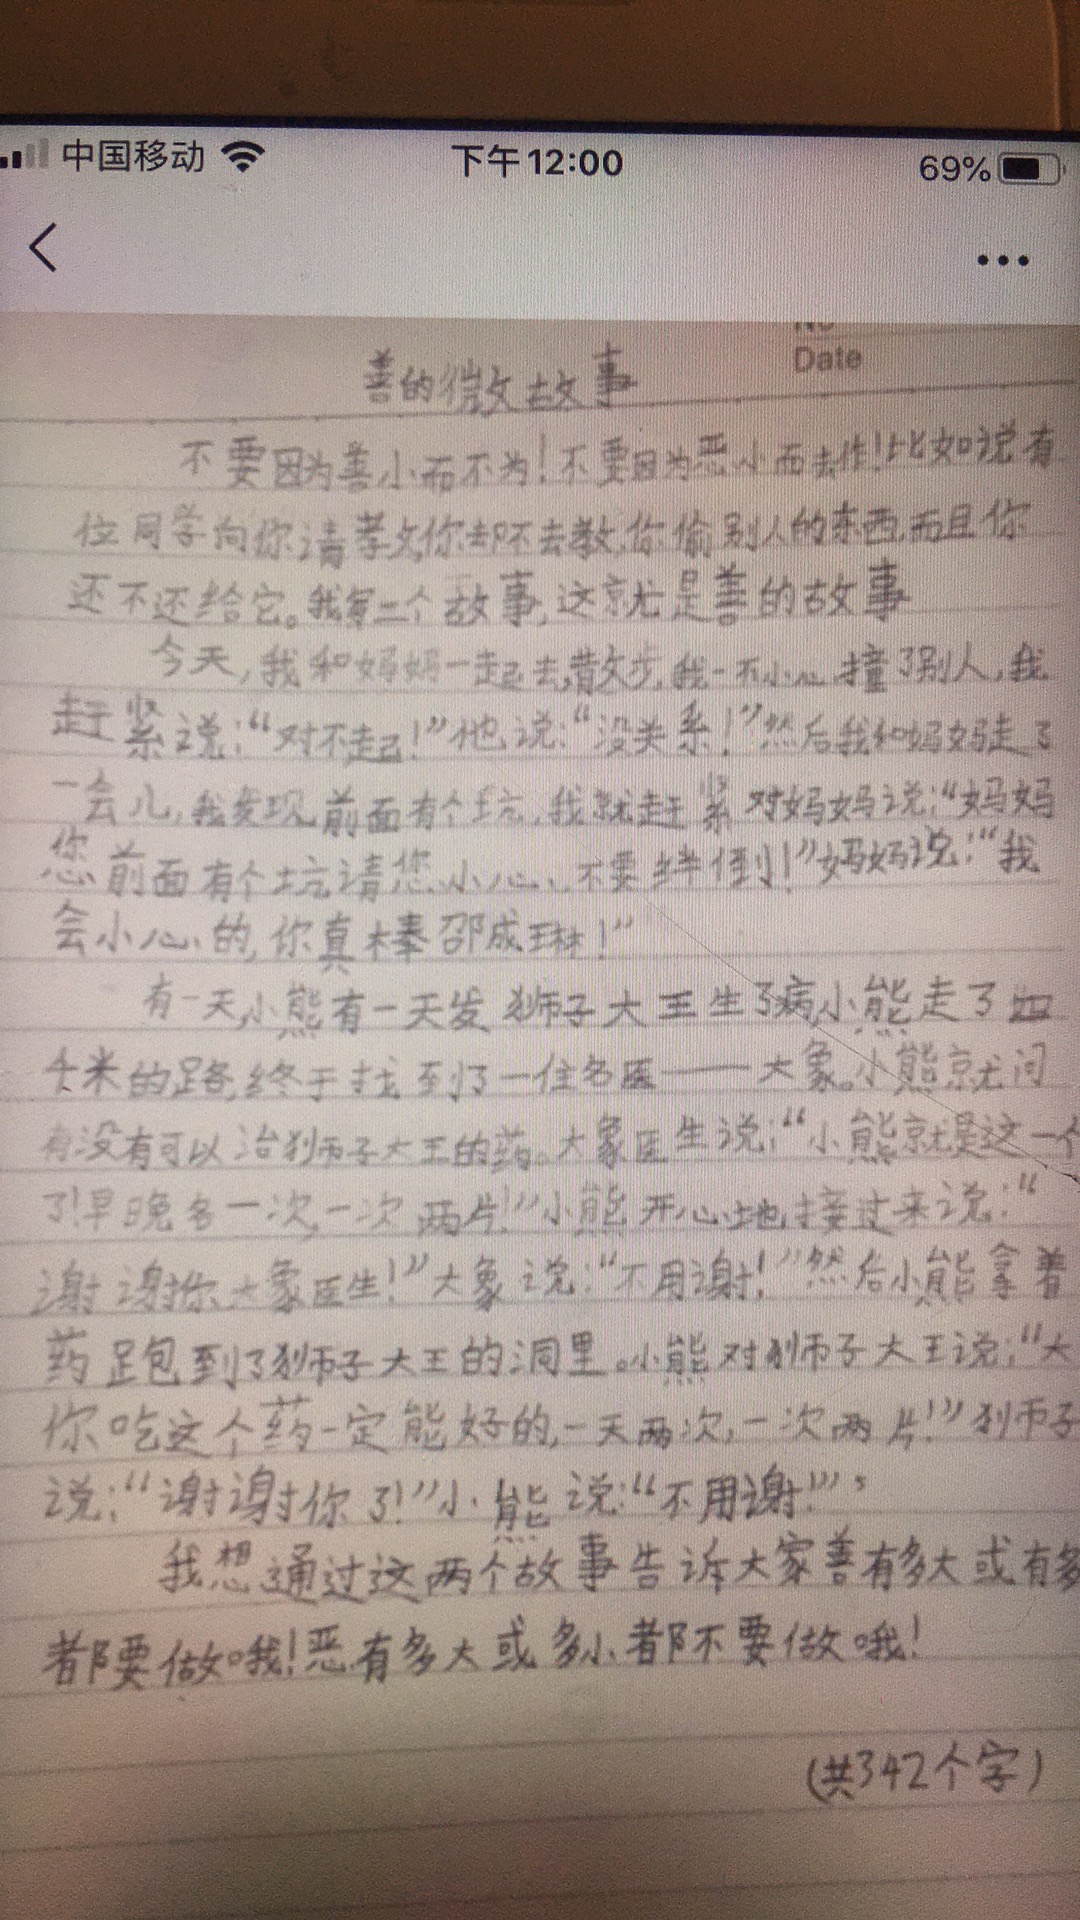 中国移动 下午12:00 69%
Date
善的微故事
不要因为善小而不为！不要因为恶小而去作！比如说有
位同学向你请教，你却不去教，你偷别人的东西，而且你
还不还给它。我写二个故事，这就是善的故事
今天，我和妈妈一起去散步，我一不小心撞了别人，我
赶紧说：“对不起！”他说：“没关系！”然后我和妈妈走了
一会儿，我发现前面有个坑，我就赶紧对妈妈说：“妈妈
您前面有个坑请您小心、不要绊倒！”妈妈说：“我
会小心的，你真棒邵成琳！”
有一天，小熊有一天发狮子大王生了病，小熊走了
米的路，终于找到了一住名医——大象。小熊就问
有没有可以治狮子大王的药。大象医生说：“小熊就是这一个
了！早晚各一次，一次两片！”小熊开心地接过来说：“
谢谢你大象医生！”大象说：“不用谢！”然后小熊拿着
药跑到了狮子大王的洞里。小熊对狮子大王说：“大
你吃这个药一定能好的，一天两次，一次两片！”狮子
说：“谢谢你了！”小熊说：“不用谢！”，
我想通过这两个故事告诉大家善有多大或有多
都要做哦！恶有多大或多小都不要做哦！
（共342个字）